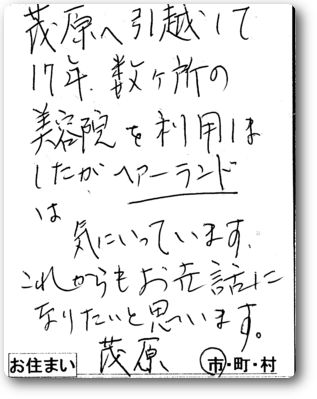 茂原へ引越して
17年、数ヶ所の
美容院を利用しま
したが、ヘアーランド
は
気にいっています。
これからもお世話に
なりたいと思います。
お住まい 茂原 市・町・村